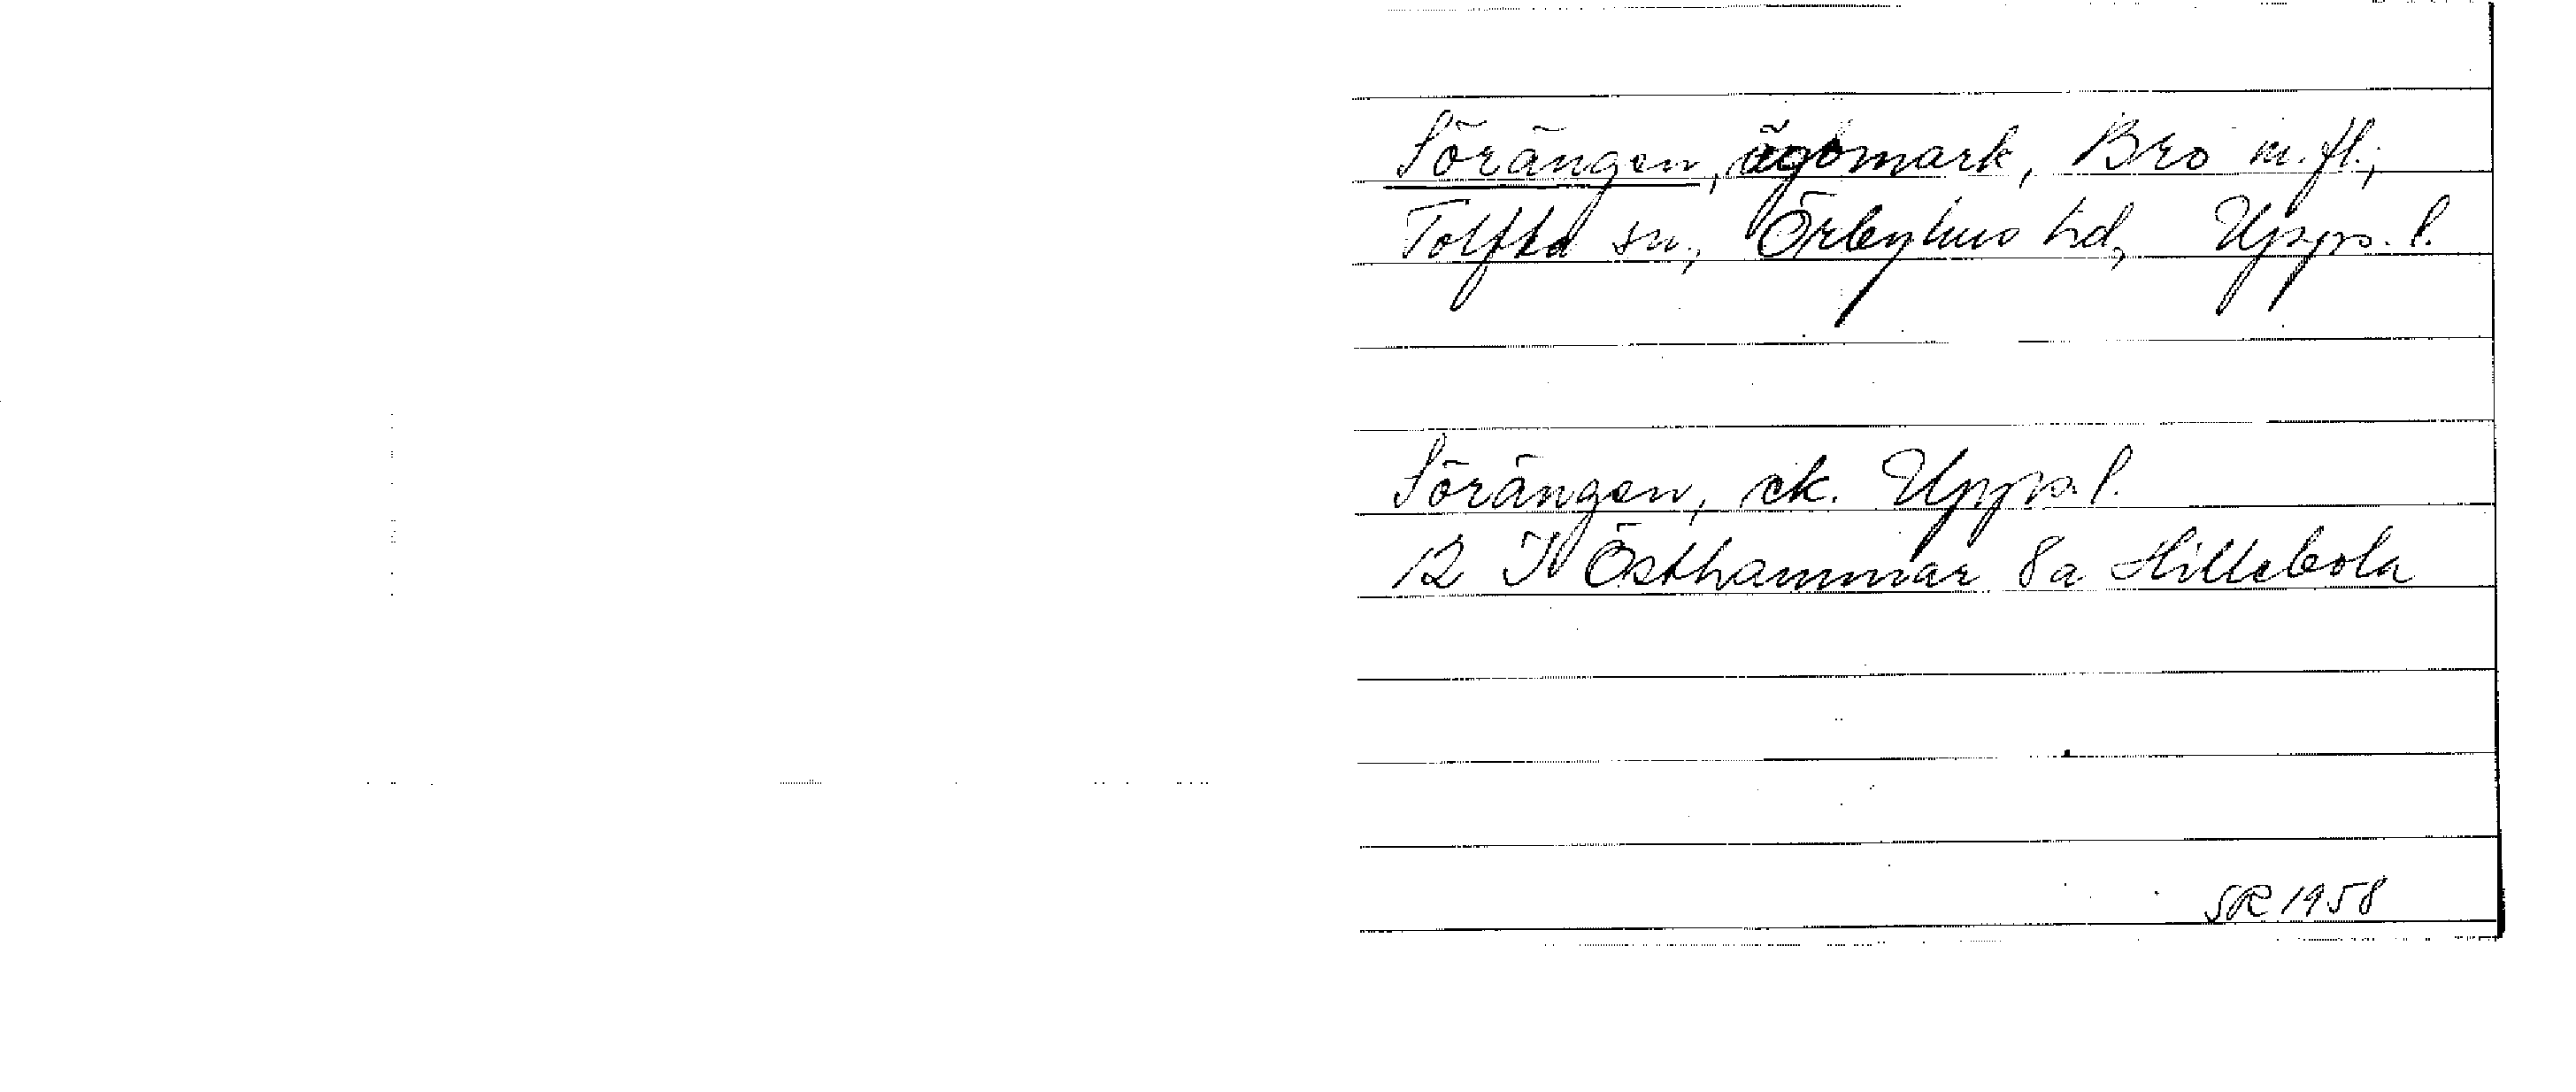 Sörängen, ägomark, Bro m.fl.,
Tolfta sn., Örbyhus hd, Upps. l.
Sörängen, ek. Upps. l.
12 I Östhammar 8a Hillebola
SR 1958